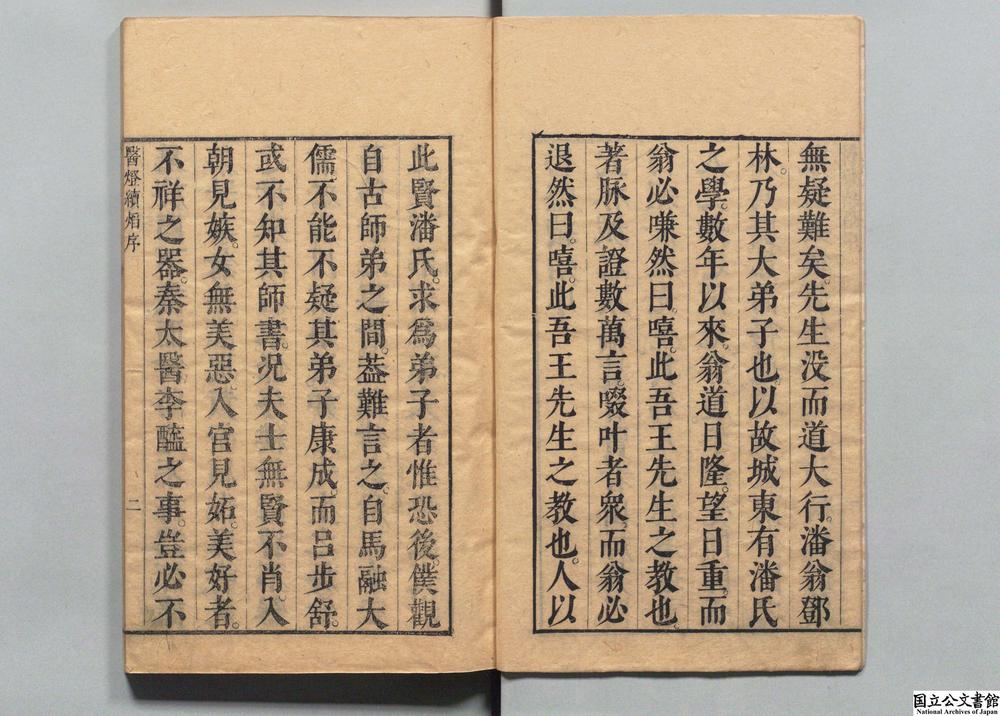 無疑難矣。先生没而道大行。潘翁鄧
林。乃其大弟子也。以故城東有潘氏
之學。數年以來。翁道日隆。望日重。而
翁必嗛然曰。嘻。此吾王先生之教也。
著脉及證數萬言。啜叶者衆。而翁必
退然曰。嘻。此吾王先生之教也。人以
此賢潘氏。求爲弟子者惟恐後。僕觀
自古師弟之間。葢難言之。自馬融大
儒。不能不疑其弟子康成。而呂步舒。
或不知其師書。况夫士無賢不肖。入
朝見嫉。女無美惡。入宫見妬。美好者。
不祥之器。秦太醫李醯之事。豈必不
醫燈續焰序
二
国立公文書館
National Archives of Japan